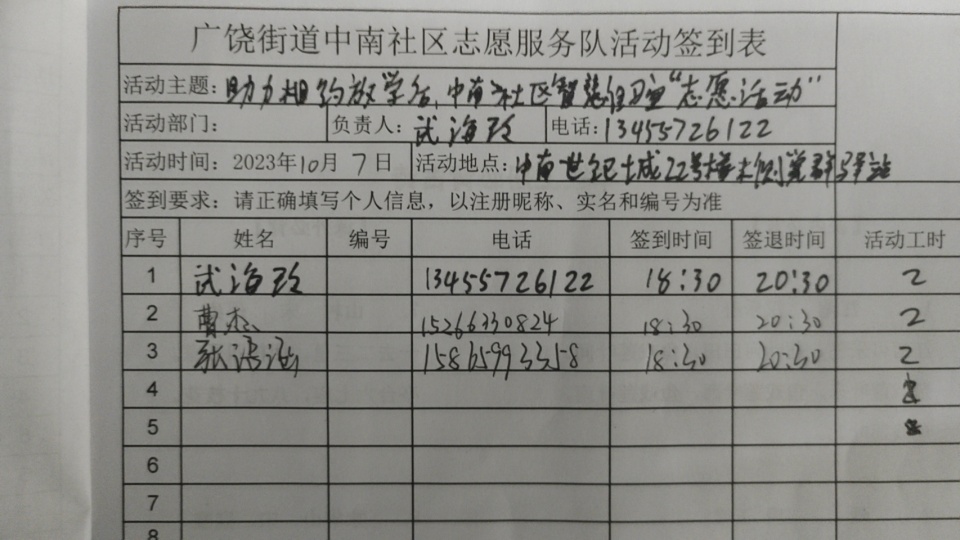 广饶街道中南社区志愿服务队活动签到表
活动主题：助力相约放学后，中南社区智慧自习室“志愿活动”
活动部门： 负责人：武海玲 电话：13455726122
活动时间：2023年10月7日 活动地点：中南世纪城22号楼东侧党群驿站
签到要求：请正确填写个人信息，以注册昵称、实名和编号为准
序号 姓名 编号 电话 签到时间 签退时间 活动工时
1 武海玲 13455726122 18:30 20:30 2
2 曹杰 15266330824 18:30 20:30 2
3 张 15865993358 18:30 20:30 2
4
5
6
7
8